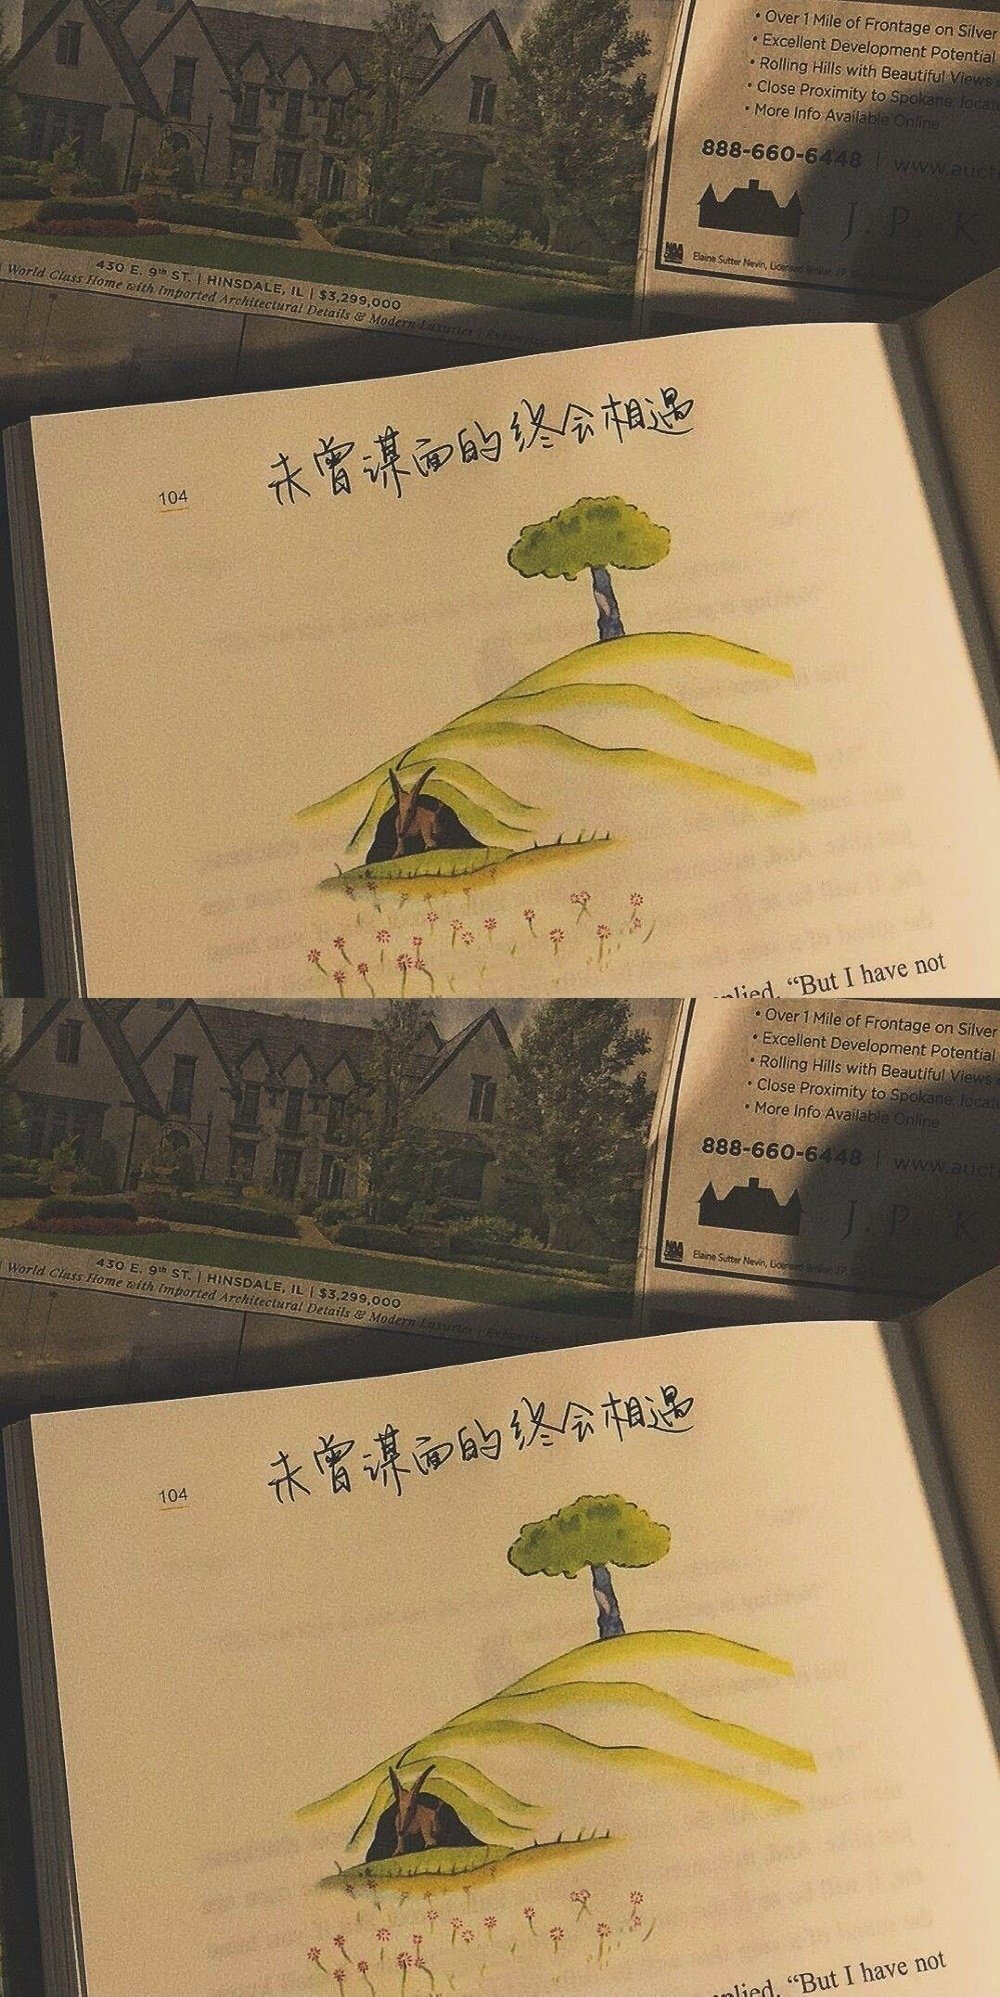 • Over 1 Mile of Frontage on Silver
• Excellent Development Potential
• Rolling Hills with Beautiful Views
• Close Proximity to Spokane,
• More Info Available Online
888-660-6448 |
J. P. K
Elaine Sutter Nevin, Licensed Broker,
430 E. 9th ST. | HINSDALE, IL | $3,299,000
World Class Home with Imported Architectural Details & Modern Luxuries |
未曾谋面的终会相遇
104
“But I have not
• Over 1 Mile of Frontage on Silver
• Excellent Development Potential
• Rolling Hills with Beautiful Views
• Close Proximity to Spokane,
• More Info Available Online
888-660-6448 |
J. P. K
Elaine Sutter Nevin, Licensed Broker,
430 E. 9th ST. | HINSDALE, IL | $3,299,000
World Class Home with Imported Architectural Details & Modern Luxuries |
未曾谋面的终会相遇
104
“But I have not